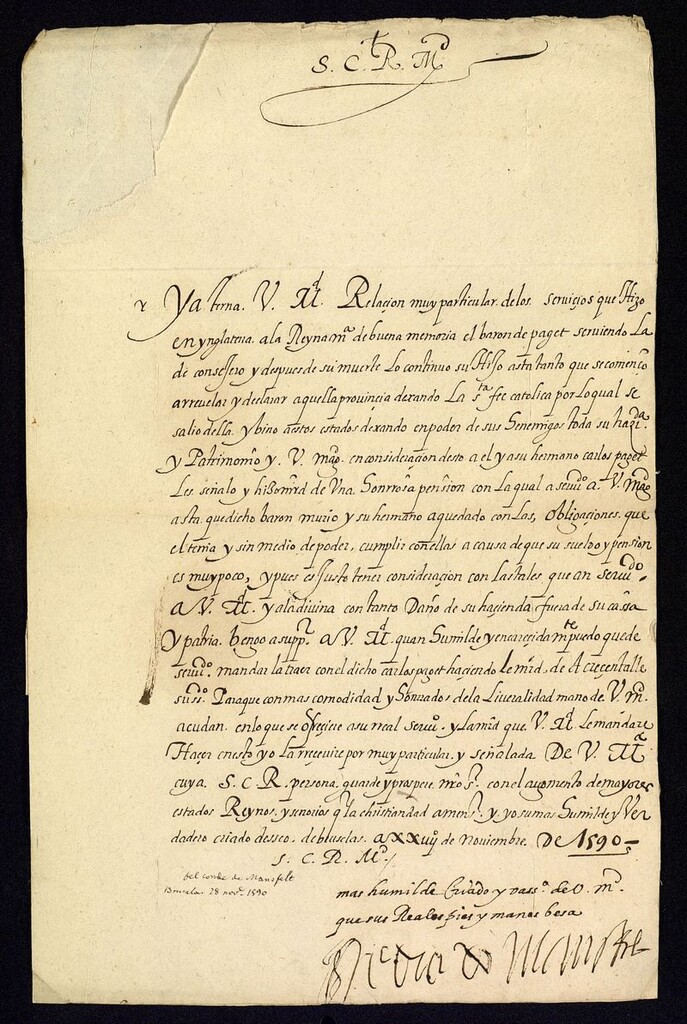 S. C. R. Md
Ya terna. V. Md. Relacion muy particular. de los servicios que Hizo
en ynglaterra. a la Reyna ma. de buena memoria el baron de paget serviendo La
de consejero y despues de su muerte Lo continuo su Hijo asta tanto que se començo
a rrevelar y declarar aquella provincia dexando La sta. fee catolica por Lo qual se
salio della. y bino a estos estados dexando en poder de sus Henemigos toda su hazda.
y Patrimonio y. V. magd. en consideraçion desto a el y a su hermano carlos paget
Les señalo y hizo mrd de Una Honrrosa pension con La qual a servido. a. V. magd
asta. que dicho baron murio y su hermano a quedado con Las, obligaciones. que
el tenia y sin medio de poder, cumplir con ellas a causa de que su sueldo y pension
es muy poco, y pues es Justo tener consideraçion con Las tales, que an servido.
a V. Md. y a la divina con tanto Daño de su hacienda fuera de su cassa
y patria. bengo a suppr. a V. Md. quan Humilde y encareçidamte. puedo que de
servido. mandar La traer con el dicho carlos paget haciendo le mrd. de Acreçentalle
Para que con mas comodidad y Honrrados de la Liveralidad mano de V. md.
acudan. en lo que se ofreçiere a su real servo. y La mrd que. V. Md. le mandare
Hacer en esto yo La rreceuire por muy particular. y señalada De V. Md.
cuya. S. C. R. persona. guarde y prospere. nro sr. con el augmento de mayores
estados Reynos. y senorios q La christiandad a menesr. y yo su mas Humilde y Ver
dadero criado desseo. de bruselas. a xxviij de Noviembre. De 1590
S. C. R. Md.
del conde de Mansfelt
Bruselas. 28 nove. 1590
mas humilde Criado y vasso. de V. md.
que sus Reales pies y manos besa